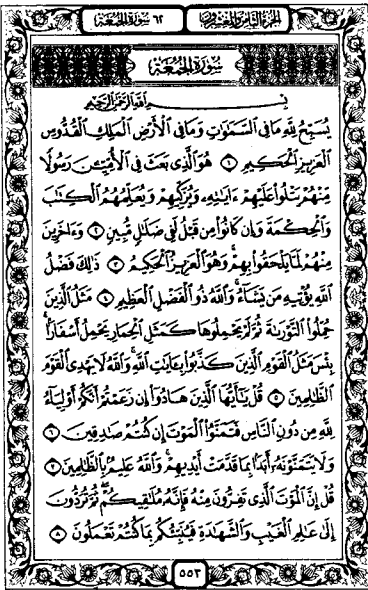 الجزء الثامن والعشرون
٦٢ سورة الجمعة
سُورَةُ الجُمُعَةِ
بِسْمِ اللَّهِ الرَّحْمَٰنِ الرَّحِيمِ
يُسَبِّحُ لِلَّهِ مَا فِي السَّمَٰوَٰتِ وَمَا فِي الْأَرْضِ الْمَلِكِ الْقُدُّوسِ
الْعَزِيزِ الْحَكِيمِ ١ هُوَ الَّذِي بَعَثَ فِي الْأُمِّيِّـۧنَ رَسُولًا
مِّنْهُمْ يَتْلُوا عَلَيْهِمْ ءَايَٰتِهِ وَيُزَكِّيهِمْ وَيُعَلِّمُهُمُ الْكِتَٰبَ
وَالْحِكْمَةَ وَإِن كَانُوا مِن قَبْلُ لَفِي ضَلَٰلٍ مُّبِينٍ ٢ وَءَاخَرِينَ
مِنْهُمْ لَمَّا يَلْحَقُوا بِهِمْ وَهُوَ الْعَزِيزُ الْحَكِيمُ ٣ ذَٰلِكَ فَضْلُ
اللَّهِ يُؤْتِيهِ مَن يَشَاءُ وَاللَّهُ ذُو الْفَضْلِ الْعَظِيمِ ٤ مَثَلُ الَّذِينَ
حُمِّلُوا التَّوْرَىٰةَ ثُمَّ لَمْ يَحْمِلُوهَا كَمَثَلِ الْحِمَارِ يَحْمِلُ أَسْفَارًا
بِئْسَ مَثَلُ الْقَوْمِ الَّذِينَ كَذَّبُوا بِـَٔايَٰتِ اللَّهِ وَاللَّهُ لَا يَهْدِي الْقَوْمَ
الظَّٰلِمِينَ ٥ قُلْ يَٰأَيُّهَا الَّذِينَ هَادُوا إِن زَعَمْتُمْ أَنَّكُمْ أَوْلِيَاءُ
لِلَّهِ مِن دُونِ النَّاسِ فَتَمَنَّوُا الْمَوْتَ إِن كُنتُمْ صَٰدِقِينَ ٦
وَلَا يَتَمَنَّوْنَهُ أَبَدًا بِمَا قَدَّمَتْ أَيْدِيهِمْ وَاللَّهُ عَلِيمٌ بِالظَّٰلِمِينَ ٧
قُلْ إِنَّ الْمَوْتَ الَّذِي تَفِرُّونَ مِنْهُ فَإِنَّهُ مُلَٰقِيكُمْ ثُمَّ تُرَدُّونَ
إِلَىٰ عَٰلِمِ الْغَيْبِ وَالشَّهَٰدَةِ فَيُنَبِّئُكُم بِمَا كُنتُمْ تَعْمَلُونَ ٨
٥٥٣